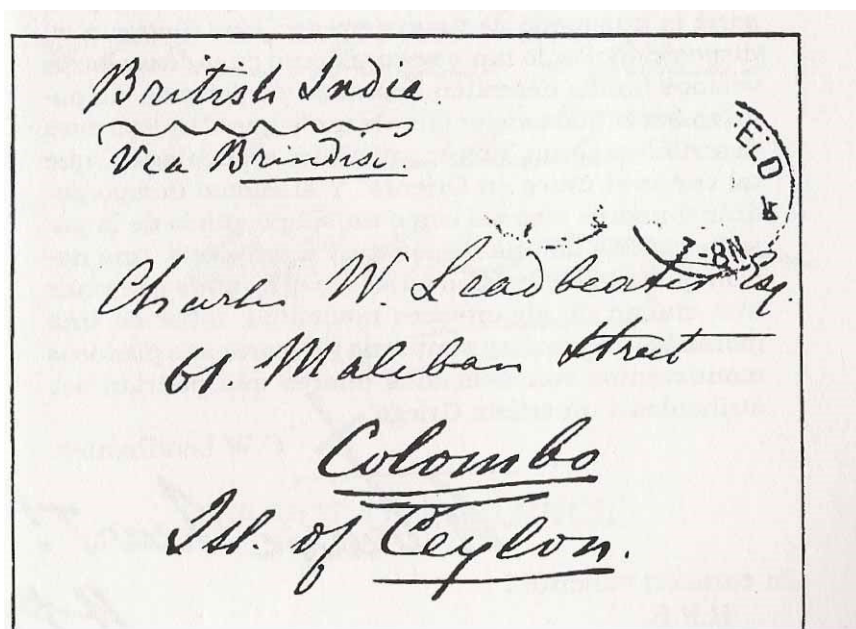 British India
Via Brindisi.
ELD
Charles W. Leadbeater Esq.
61. Maliban Street
Colombo
Isl. of Ceylon.